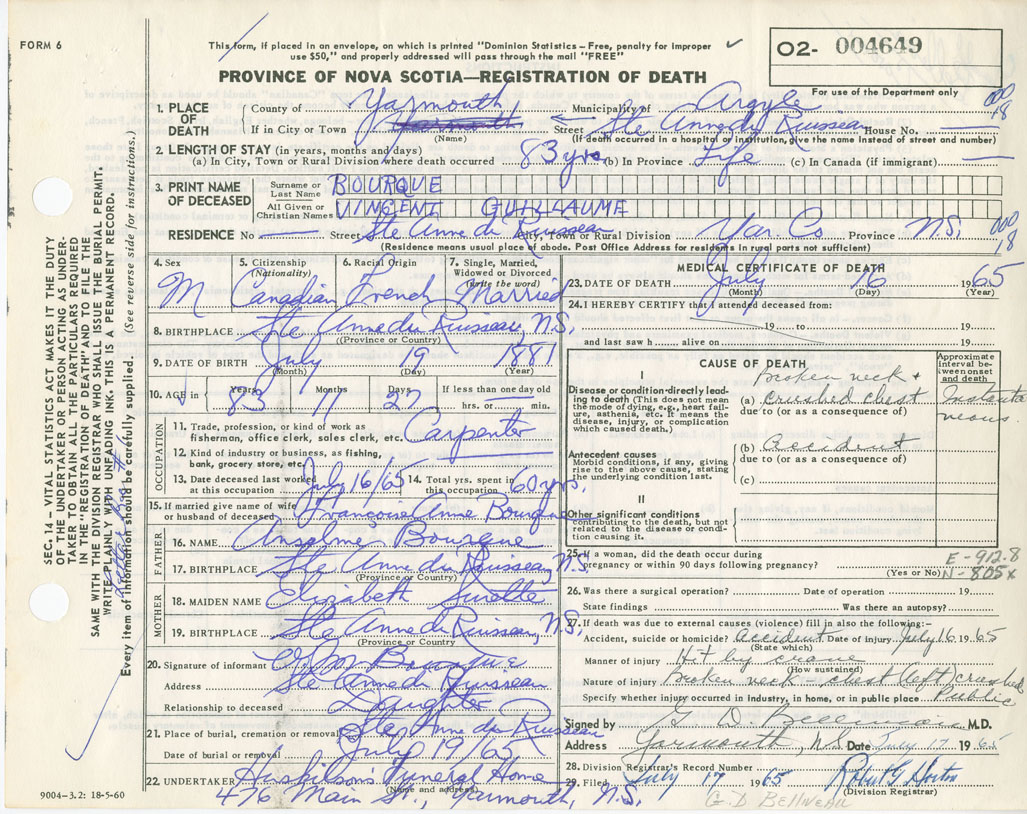 FORM 6
This form, if placed in an envelope, on which is printed "Dominion Statistics – Free, penalty for improper
use $50," and properly addressed will pass through the mail "FREE"
O2- 004649
For use of the Department only
PROVINCE OF NOVA SCOTIA—REGISTRATION OF DEATH
1. PLACE OF DEATH
County of Yarmouth Municipality of Argyle
If in City or Town Yarmouth (Name) Street Ste Anne du Ruisseau House No.
(If death occurred in a hospital or institution, give the name instead of street and number)
000
18
2. LENGTH OF STAY (in years, months and days)
(a) In City, Town or Rural Division where death occurred 83 yrs (b) In Province Life (c) In Canada (if immigrant)
3. PRINT NAME OF DECEASED
Surname or Last Name BOURQUE
All Given or Christian Names VINCENT GUILLAUME
RESIDENCE No Street Ste Anne du Ruisseau City, Town or Rural Division Yar. Co Province N.S.
(Residence means usual place of abode. Post Office Address for residents in rural parts not sufficient)
000
18
4. Sex M
5. Citizenship (Nationality) Canadian
6. Racial Origin French
7. Single, Married, Widowed or Divorced (write the word) Married
8. BIRTHPLACE Ste Anne du Ruisseau, N.S.
(Province or Country)
9. DATE OF BIRTH July 19 1881
(Month) (Day) (Year)
10. AGE in Years 83 Months 11 Days 27 If less than one day old hrs. or min.
OCCUPATION
11. Trade, profession, or kind of work as fisherman, office clerk, sales clerk, etc. Carpenter
12. Kind of industry or business, as fishing, bank, grocery store, etc.
13. Date deceased last worked at this occupation July 16/65 14. Total yrs. spent in this occupation 60 yrs.
15. If married give name of wife or husband of deceased Françoise Anne Bourque
FATHER
16. NAME Anselme Bourque
17. BIRTHPLACE Ste Anne du Ruisseau, N.S.
(Province or Country)
MOTHER
18. MAIDEN NAME Elizabeth Surette
19. BIRTHPLACE Ste Anne du Ruisseau, N.S.
(Province or Country)
20. Signature of informant Bourque
Address Ste Anne du Ruisseau
Relationship to deceased Daughter
21. Place of burial, cremation or removal Ste Anne du Ruisseau
Date of burial or removal July 19/65
22. UNDERTAKER Huskilson's Funeral Home
(Name and address)
476 Main St., Yarmouth, N.S.
9004-3.2: 18-5-60
MEDICAL CERTIFICATE OF DEATH
23. DATE OF DEATH July 16 1965
(Month) (Day) (Year)
24. I HEREBY CERTIFY that I attended deceased from:
19 to 19
and last saw h alive on 19
CAUSE OF DEATH
Approximate interval between onset and death
I
Disease or condition directly leading to death (This does not mean the mode of dying, e.g., heart failure, asthenia, etc. It means the disease, injury, or complication which caused death.)
Broken neck +
(a) crushed chest Instantaneous
due to (or as a consequence of)
Antecedent causes
Morbid conditions, if any, giving rise to the above cause, stating the underlying condition last.
(b) Accident
due to (or as a consequence of)
(c)
II
Other significant conditions
contributing to the death, but not related to the disease or condition causing it.
25. If a woman, did the death occur during pregnancy or within 90 days following pregnancy? (Yes or No)
E-912.8
N-805x
26. Was there a surgical operation? Date of operation 19
State findings Was there an autopsy?
27. If death was due to external causes (violence) fill in also the following:-
Accident, suicide or homicide? Accident Date of injury July 16 1965
(State which)
Manner of injury Hit by crane
(How sustained)
Nature of injury Broken neck – chest (left) crushed
Specify whether injury occurred in Industry, in home, or in public place Public
Signed by G. D. Belliveau M.D.
Address Yarmouth, N.S. Date July 17 1965
28. Division Registrar's Record Number
29. Filed July 17 1965 Robert G Horton
(Division Registrar)
G.D BELLIVEAU
SEC. 14 – VITAL STATISTICS ACT MAKES IT THE DUTY
OF THE UNDERTAKER OR PERSON ACTING AS UNDER-
TAKER TO OBTAIN ALL THE PARTICULARS REQUIRED
IN THE "REGISTRATION OF DEATH" AND FILE THE
SAME WITH THE DIVISION REGISTRAR WHO SHALL ISSUE THE BURIAL PERMIT.
WRITE PLAINLY WITH UNFADING INK. THIS IS A PERMANENT RECORD.
Every item of information should be carefully supplied. (See reverse side for instructions.)